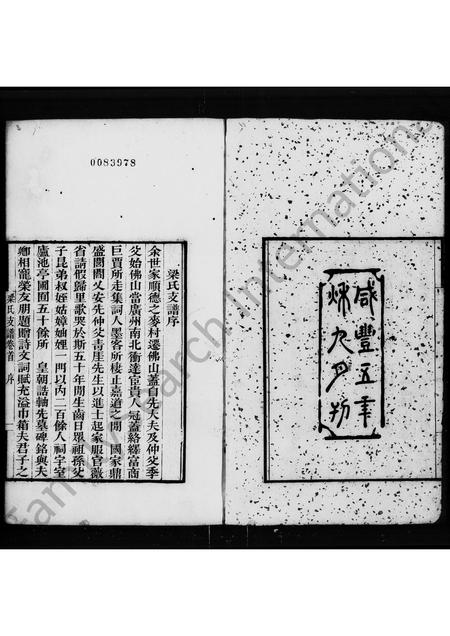 咸豐五年
秌九月刊
0083978
梁氏支譜序
余世家順德之麥村遷佛山蓋自先大夫及仲父季
父始佛山當廣州南北衝達宦貴人冠蓋絡繹富商
巨賈所走集詞人墨客所棲止嘉道之間 國家鼎
盛閭閻乂安先仲父書厓先生以進士起家服官薇
省請假歸里歌哭於斯五十年間生齒日眾祖孫父
子昆弟叔姪姑嫜妯娌一門以內二百餘人祠宇室
廬池亭園囿五十餘所 皇朝誥軸先墓碑銘與夫
鄉相寵榮友朋題贈詩文詞賦充溢巾箱夫君子之
梁氏支譜卷首 序 一
FamilySearch International